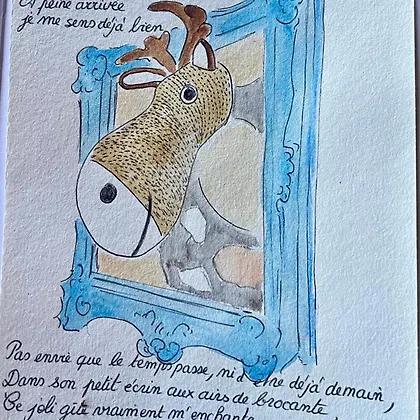 A peine arrivée
je me sens déjà bien
Pas envie que le temps passe, ni d'être déjà demain,
Dans son petit écrin aux airs de brocante
Ce joli gîte vraiment m'enchante